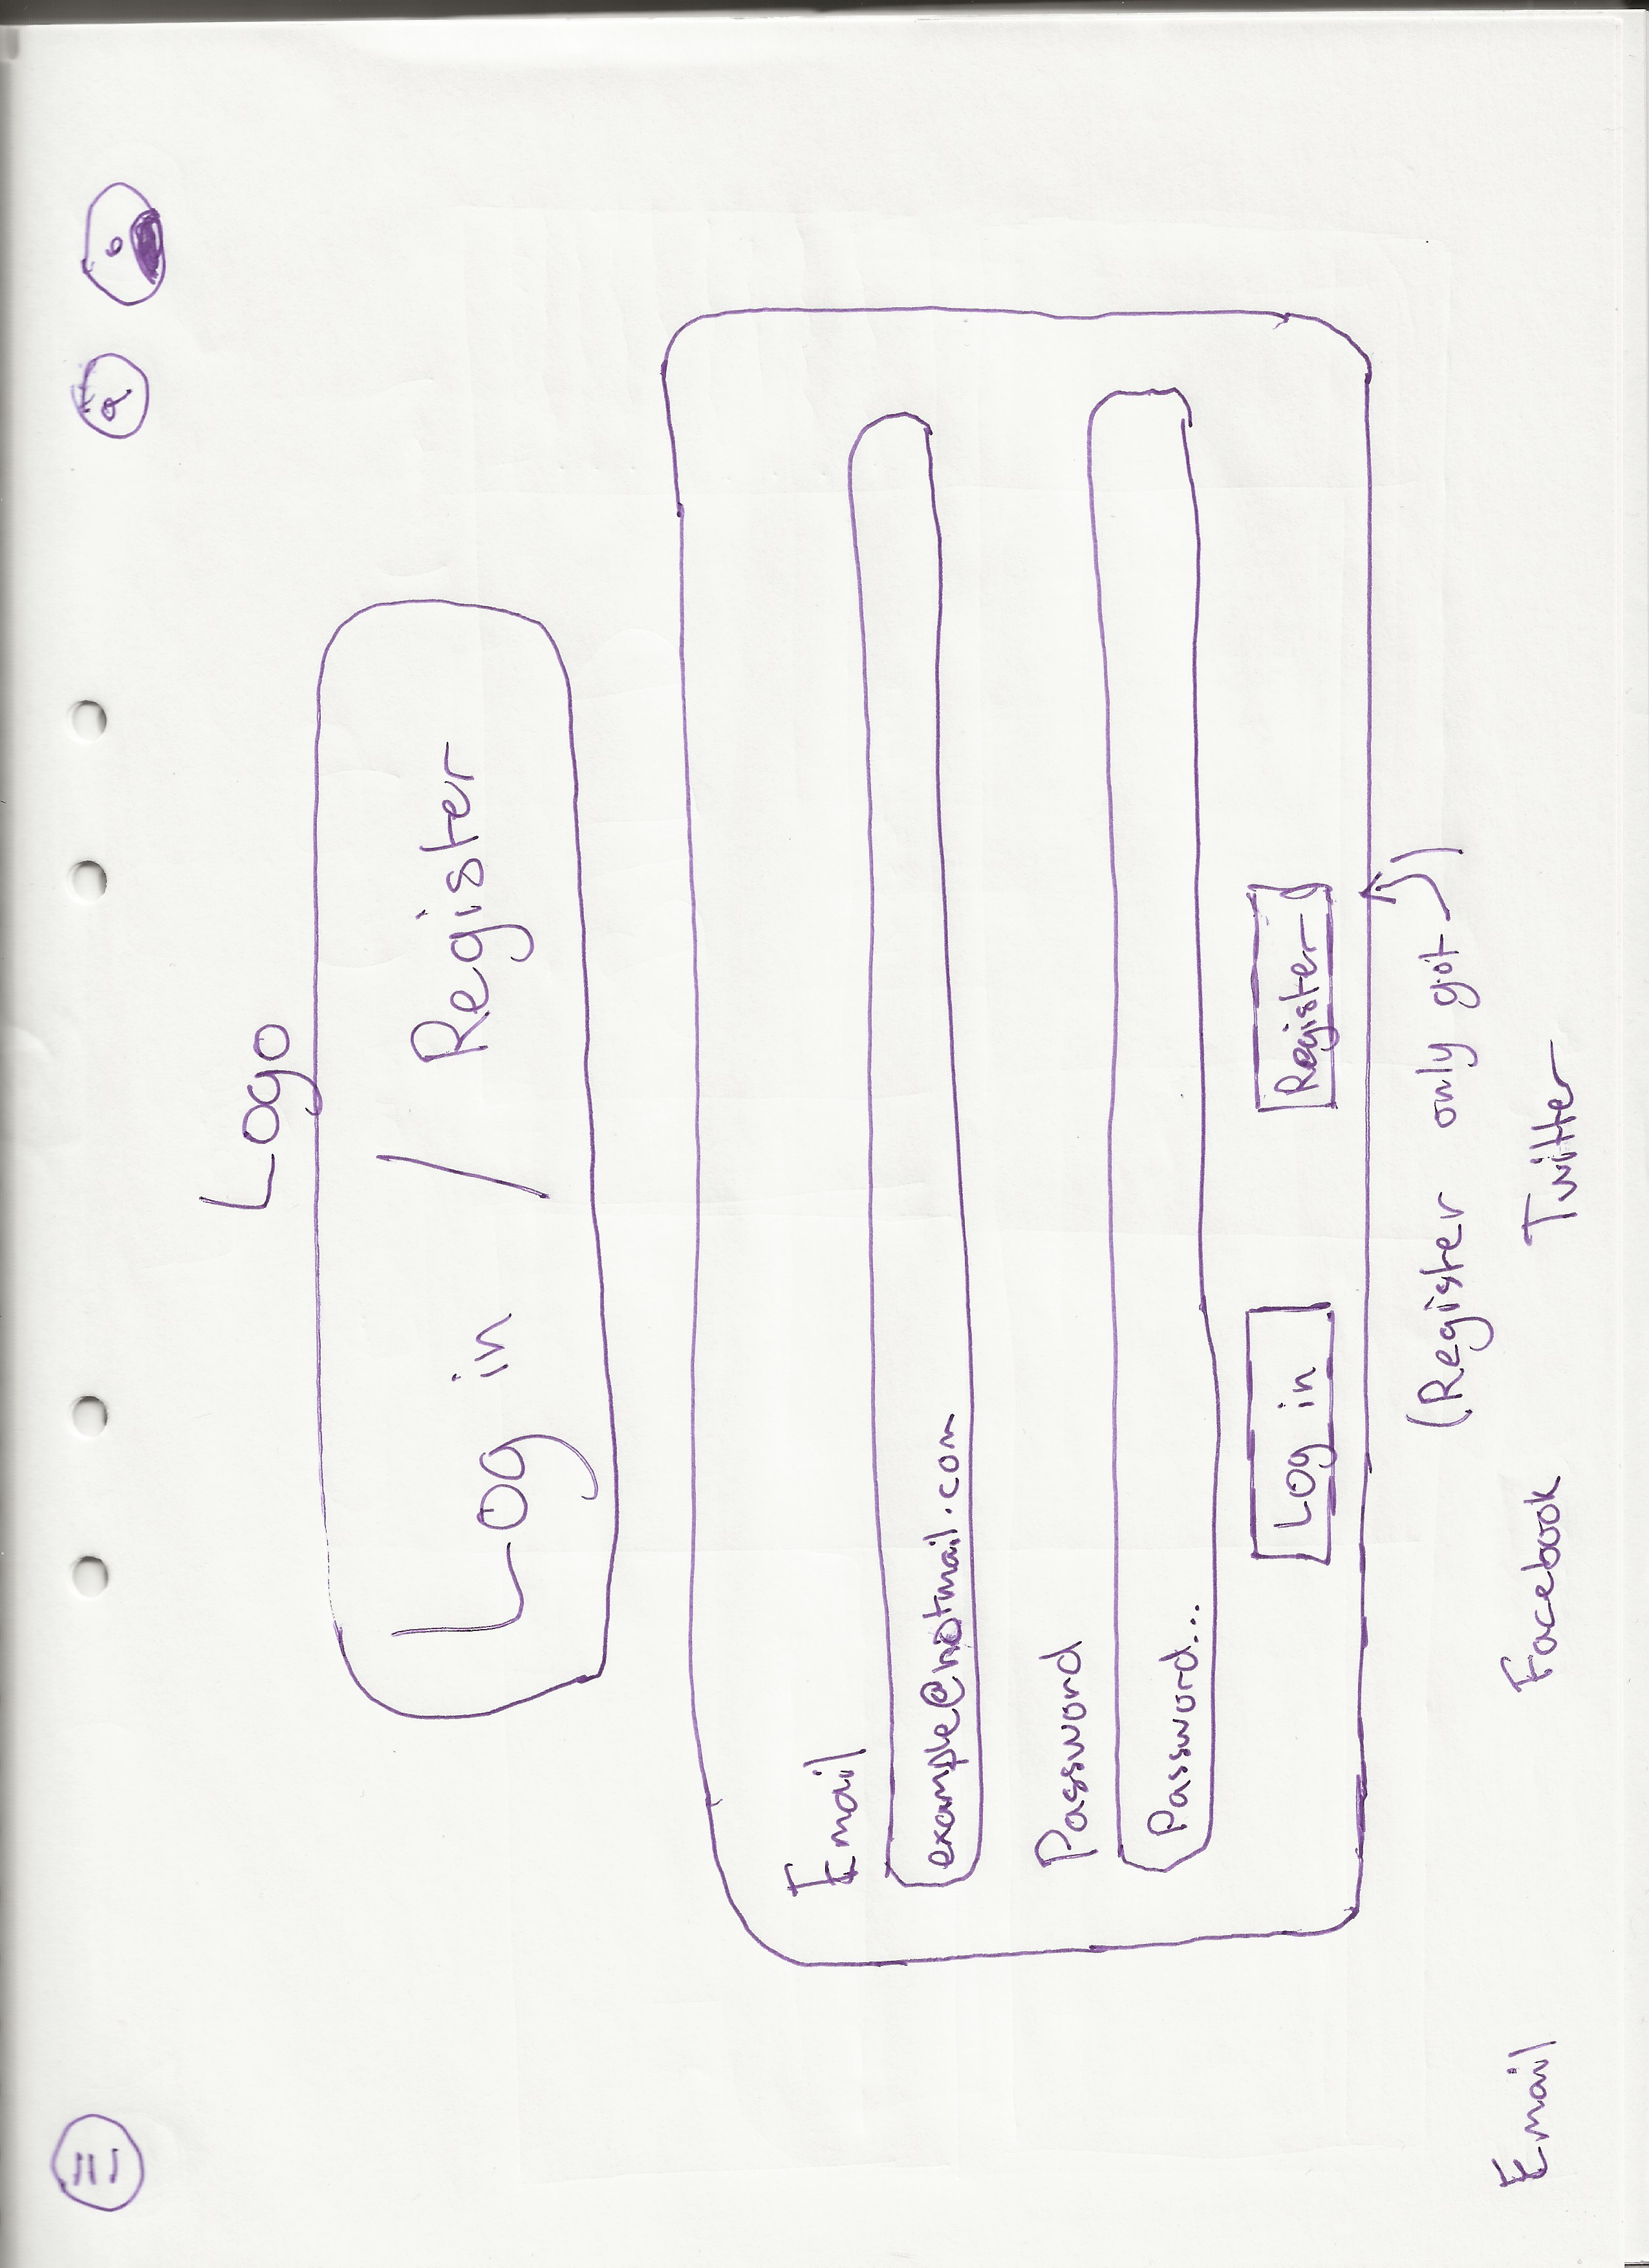 Logo
Log in / Register
Email
example@hotmail.com
Password
Password...
Log in Register
(Register only got )
Email Facebook Twitter